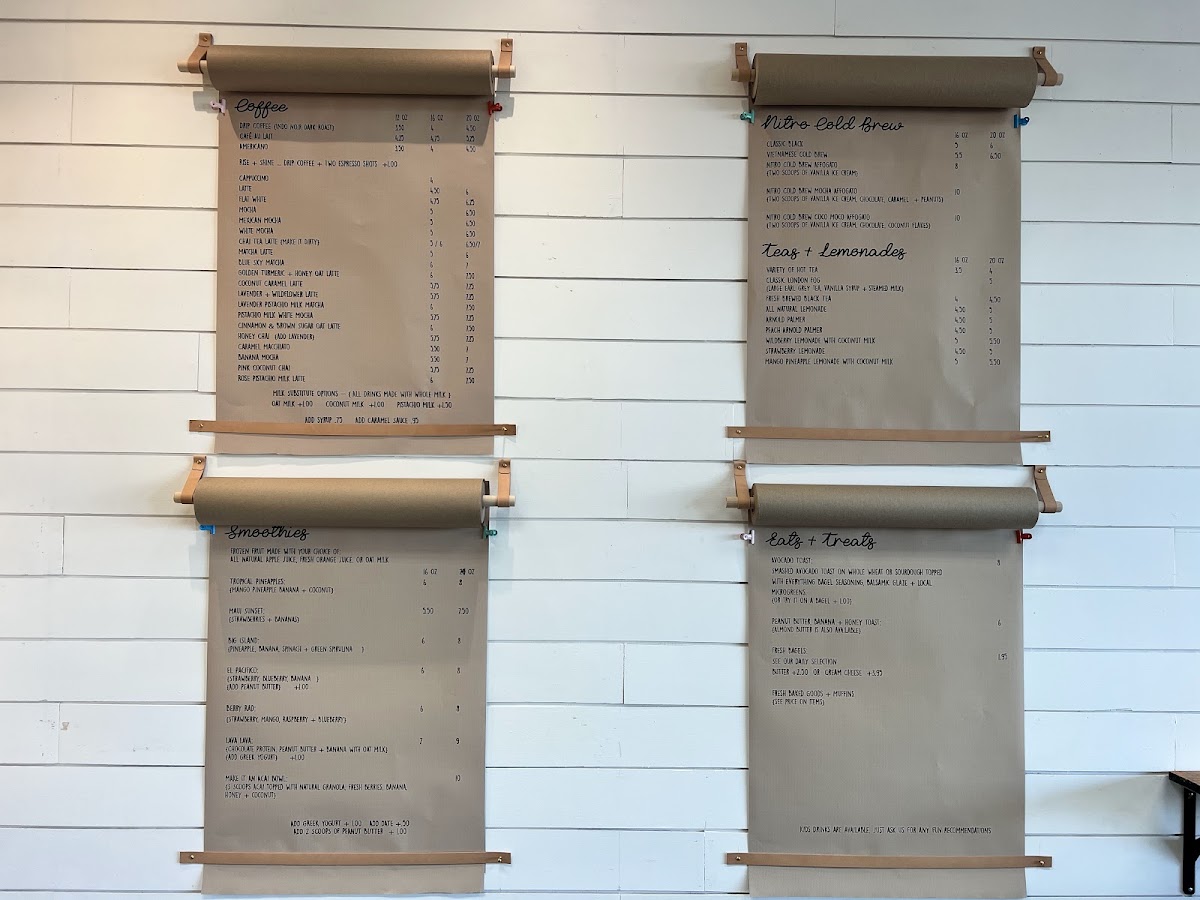 Coffee
12 OZ 16 OZ 20 OZ
DRIP COFFEE (INDO NOIR DARK ROAST) 3.50 4 4.50
CAFÉ AU LAIT 4.25 4.75 5.25
AMERICANO 3.50 4 4.50
RISE + SHINE ... DRIP COFFEE + TWO ESPRESSO SHOTS +1.00
CAPPUCCINO 4
LATTE 4.50 6
FLAT WHITE 4.75 6.25
MOCHA 5 6.50
MEXICAN MOCHA 5 6.50
WHITE MOCHA 5 6.50
CHAI TEA LATTE (MAKE IT DIRTY) 5 / 6 6.50/7
MATCHA LATTE 5 6
BLUE SKY MATCHA 6 7
GOLDEN TURMERIC + HONEY OAT LATTE 6 7.50
COCONUT CARAMEL LATTE 5.75 7.25
LAVENDER + WILDFLOWER LATTE 5.75 7.25
LAVENDER PISTACHIO MILK MATCHA 6 7.50
PISTACHIO MILK WHITE MOCHA 5.75 7.25
CINNAMON & BROWN SUGAR OAT LATTE 6 7.50
HONEY CHAI (ADD LAVENDER) 5.75 7.25
CARAMEL MACCHIATO 5.50 7
BANANA MOCHA 5.50 7
PINK COCONUT CHAI 5.75 7.25
ROSE PISTACHIO MILK LATTE 6 7.50
MILK SUBSTITUTE OPTIONS - ( ALL DRINKS MADE WITH WHOLE MILK )
OAT MILK +1.00 COCONUT MILK +1.00 PISTACHIO MILK +1.50
ADD SYRUP .75 ADD CARAMEL SAUCE .95
Nitro Cold Brew
16 OZ 20 OZ
CLASSIC BLACK 5 6
VIETNAMESE COLD BREW 5.5 6.50
NITRO COLD BREW AFFOGATO 8
(TWO SCOOPS OF VANILLA ICE CREAM)
NITRO COLD BREW MOCHA AFFOGATO 10
(TWO SCOOPS OF VANILLA ICE CREAM, CHOCOLATE, CARAMEL + PEANUTS)
NITRO COLD BREW COCO MOCO AFFOGATO 10
(TWO SCOOPS OF VANILLA ICE CREAM, CHOCOLATE, COCONUT FLAKES)
Teas + Lemonades
16 OZ 20 OZ
VARIETY OF HOT TEA 3.5 4
CLASSIC LONDON FOG 5
(LARGE EARL GREY TEA, VANILLA SYRUP + STEAMED MILK)
FRESH BREWED BLACK TEA 4 4.50
ALL NATURAL LEMONADE 4.50 5
ARNOLD PALMER 4.50 5
PEACH ARNOLD PALMER 4.50 5
WILDBERRY LEMONADE WITH COCONUT MILK 5 5.50
STRAWBERRY LEMONADE 4.50 5
MANGO PINEAPPLE LEMONADE WITH COCONUT MILK 5 5.50
Smoothies
FROZEN FRUIT MADE WITH YOUR CHOICE OF:
ALL NATURAL APPLE JUICE, FRESH ORANGE JUICE, OR OAT MILK
16 OZ 20 OZ
TROPICAL PINEAPPLES: 6 8
(MANGO PINEAPPLE BANANA + COCONUT)
MAUI SUNSET: 5.50 7.50
(STRAWBERRIES + BANANAS)
BIG ISLAND: 6 8
(PINEAPPLE, BANANA, SPINACH + GREEN SPIRULINA )
EL PACIFICO: 6 8
(STRAWBERRY, BLUEBERRY, BANANA )
(ADD PEANUT BUTTER) +1.00
BERRY RAD: 6 8
(STRAWBERRY, MANGO, RASPBERRY + BLUEBERRY)
LAVA LAVA: 7 9
(CHOCOLATE PROTEIN, PEANUT BUTTER + BANANA WITH OAT MILK)
(ADD GREEK YOGURT) +1.00
MAKE IT AN ACAI BOWL: 10
(3 SCOOPS ACAI TOPPED WITH NATURAL GRANOLA, FRESH BERRIES, BANANA,
HONEY + COCONUT)
ADD GREEK YOGURT +1.00 ADD DATE +.50
ADD 2 SCOOPS OF PEANUT BUTTER + 1.00
Eats + Treats
AVOCADO TOAST: 8
SMASHED AVOCADO TOAST ON WHOLE WHEAT OR SOURDOUGH TOPPED
WITH EVERYTHING BAGEL SEASONING, BALSAMIC GLAZE + LOCAL
MICROGREENS
(OR TRY IT ON A BAGEL + 1.00)
PEANUT BUTTER BANANA + HONEY TOAST: 6
(ALMOND BUTTER IS ALSO AVAILABLE)
FRESH BAGELS: 1.95
SEE OUR DAILY SELECTION
BUTTER +2.50 OR CREAM CHEESE +3.95
FRESH BAKED GOODS + MUFFINS
(SEE PRICE ON ITEMS)
KIDS DRINKS ARE AVAILABLE, JUST ASK US FOR ANY FUN RECOMMENDATIONS